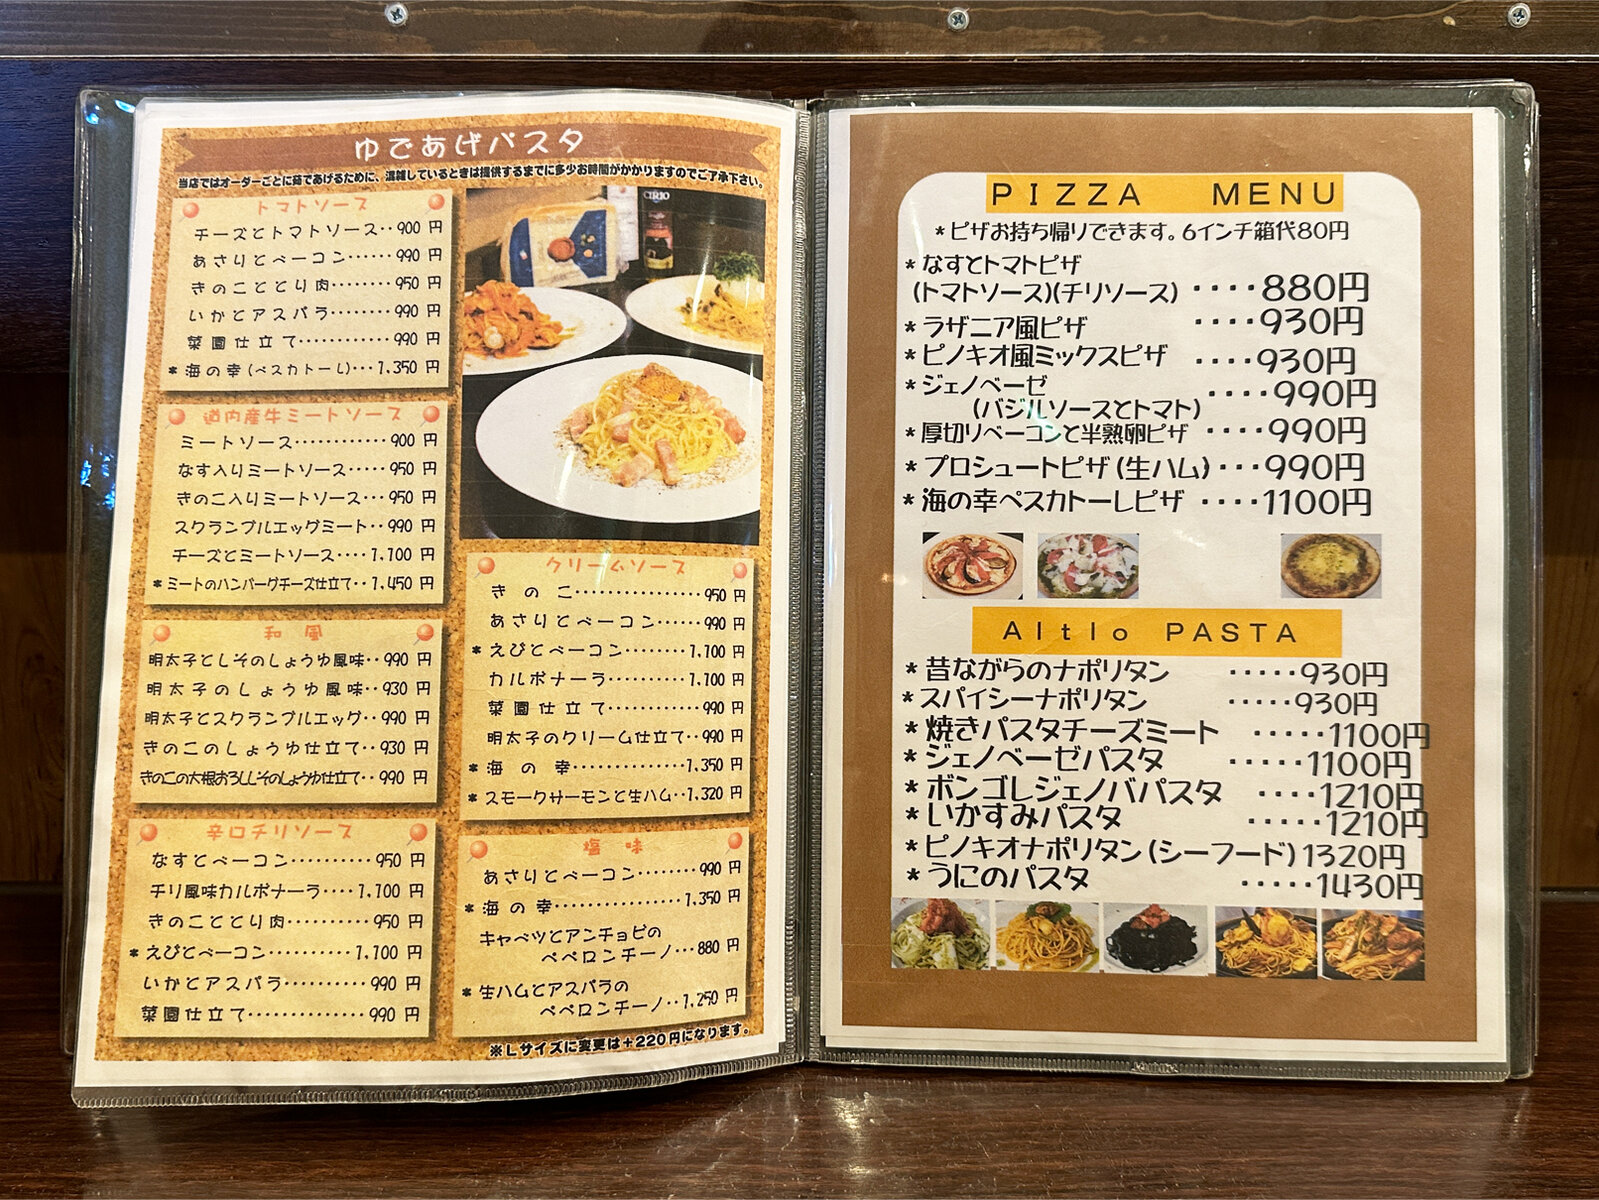 ゆであげパスタ
当店ではオーダーごとに茹であげるために、混雑しているときは提供するまでに多少お時間がかかりますのでご了承下さい。
トマトソース
チーズとトマトソース‥900 円
あさりとベーコン‥‥‥990 円
きのこととり肉‥‥‥‥950 円
いかとアスパラ‥‥‥‥990 円
菜園仕立て‥‥‥‥‥‥990 円
*海の幸(ペスカトーレ)‥‥1,350 円
道内産牛ミートソース
ミートソース‥‥‥‥‥‥900 円
なす入りミートソース‥‥‥950 円
きのこ入りミートソース‥‥950 円
スクランブルエッグミート‥990 円
チーズとミートソース‥‥1,100 円
*ミートのハンバーグチーズ仕立て‥1,450 円
和風
明太子としそのしょうゆ風味‥990 円
明太子のしょうゆ風味‥930 円
明太子とスクランブルエッグ‥990 円
きのこのしょうゆ仕立て‥930 円
きのこの大根おろししそのしょうゆ仕立て‥990 円
辛口チリソース
なすとベーコン‥‥‥‥‥950 円
チリ風味カルボナーラ‥‥1,100 円
きのこととり肉‥‥‥‥‥950 円
*えびとベーコン‥‥‥‥‥1,100 円
いかとアスパラ‥‥‥‥‥990 円
菜園仕立て‥‥‥‥‥‥‥990 円
CIRIO
クリームソース
きのこ‥‥‥‥‥‥‥‥950 円
あさりとベーコン‥‥‥990 円
*えびとベーコン‥‥‥‥1,100 円
カルボナーラ‥‥‥‥‥1,100 円
菜園仕立て‥‥‥‥‥‥990 円
明太子のクリーム仕立て‥990 円
*海の幸‥‥‥‥‥‥‥1,350 円
*スモークサーモンと生ハム‥1,320 円
塩味
あさりとベーコン‥‥‥‥990 円
*海の幸‥‥‥‥‥‥‥‥1,350 円
キャベツとアンチョビの
ペペロンチーノ‥‥880 円
*生ハムとアスパラの
ペペロンチーノ‥1,250 円
※Lサイズに変更は+220円になります。
PIZZA MENU
*ピザお持ち帰りできます。6インチ箱代80円
*なすとトマトピザ
(トマトソース)(チリソース) ‥‥880円
*ラザニア風ピザ ‥‥930円
*ピノキオ風ミックスピザ ‥‥930円
*ジェノベーゼ
(バジルソースとトマト) ‥‥990円
*厚切りベーコンと半熟卵ピザ ‥‥990円
*プロシュートピザ(生ハム)‥‥990円
*海の幸ペスカトーレピザ ‥‥1100円
Altlo PASTA
*昔ながらのナポリタン ‥‥‥930円
*スパイシーナポリタン ‥‥‥930円
*焼きパスタチーズミート ‥‥‥1100円
*ジェノベーゼパスタ ‥‥‥1100円
*ボンゴレジェノババパスタ ‥‥1210円
*いかすみパスタ ‥‥‥1210円
*ピノキオナポリタン(シーフード)1320円
*うにのパスタ ‥‥‥1430円